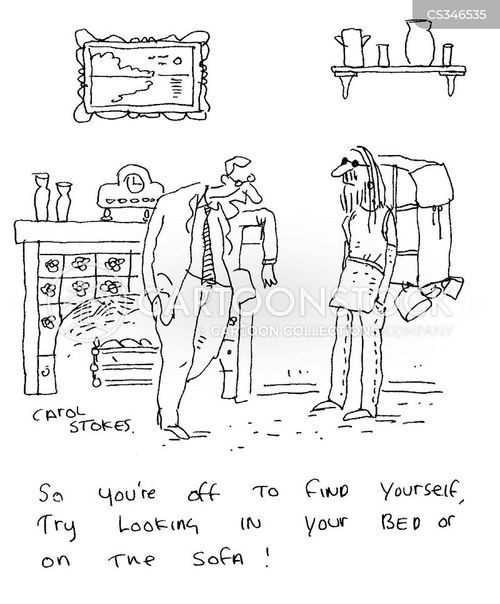 CS346535
CARTOONSTOCK
CARTOON COLLECTIONS COMPANY
CAROL
STOKES.
So you're off To FIND Yourself,
Try Looking IN your BED or
on The SofA !